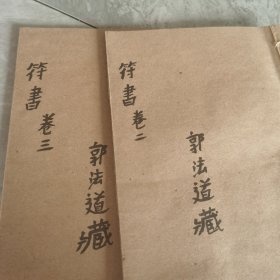 符書 卷二
郭法道藏
符書 卷三
郭法道藏